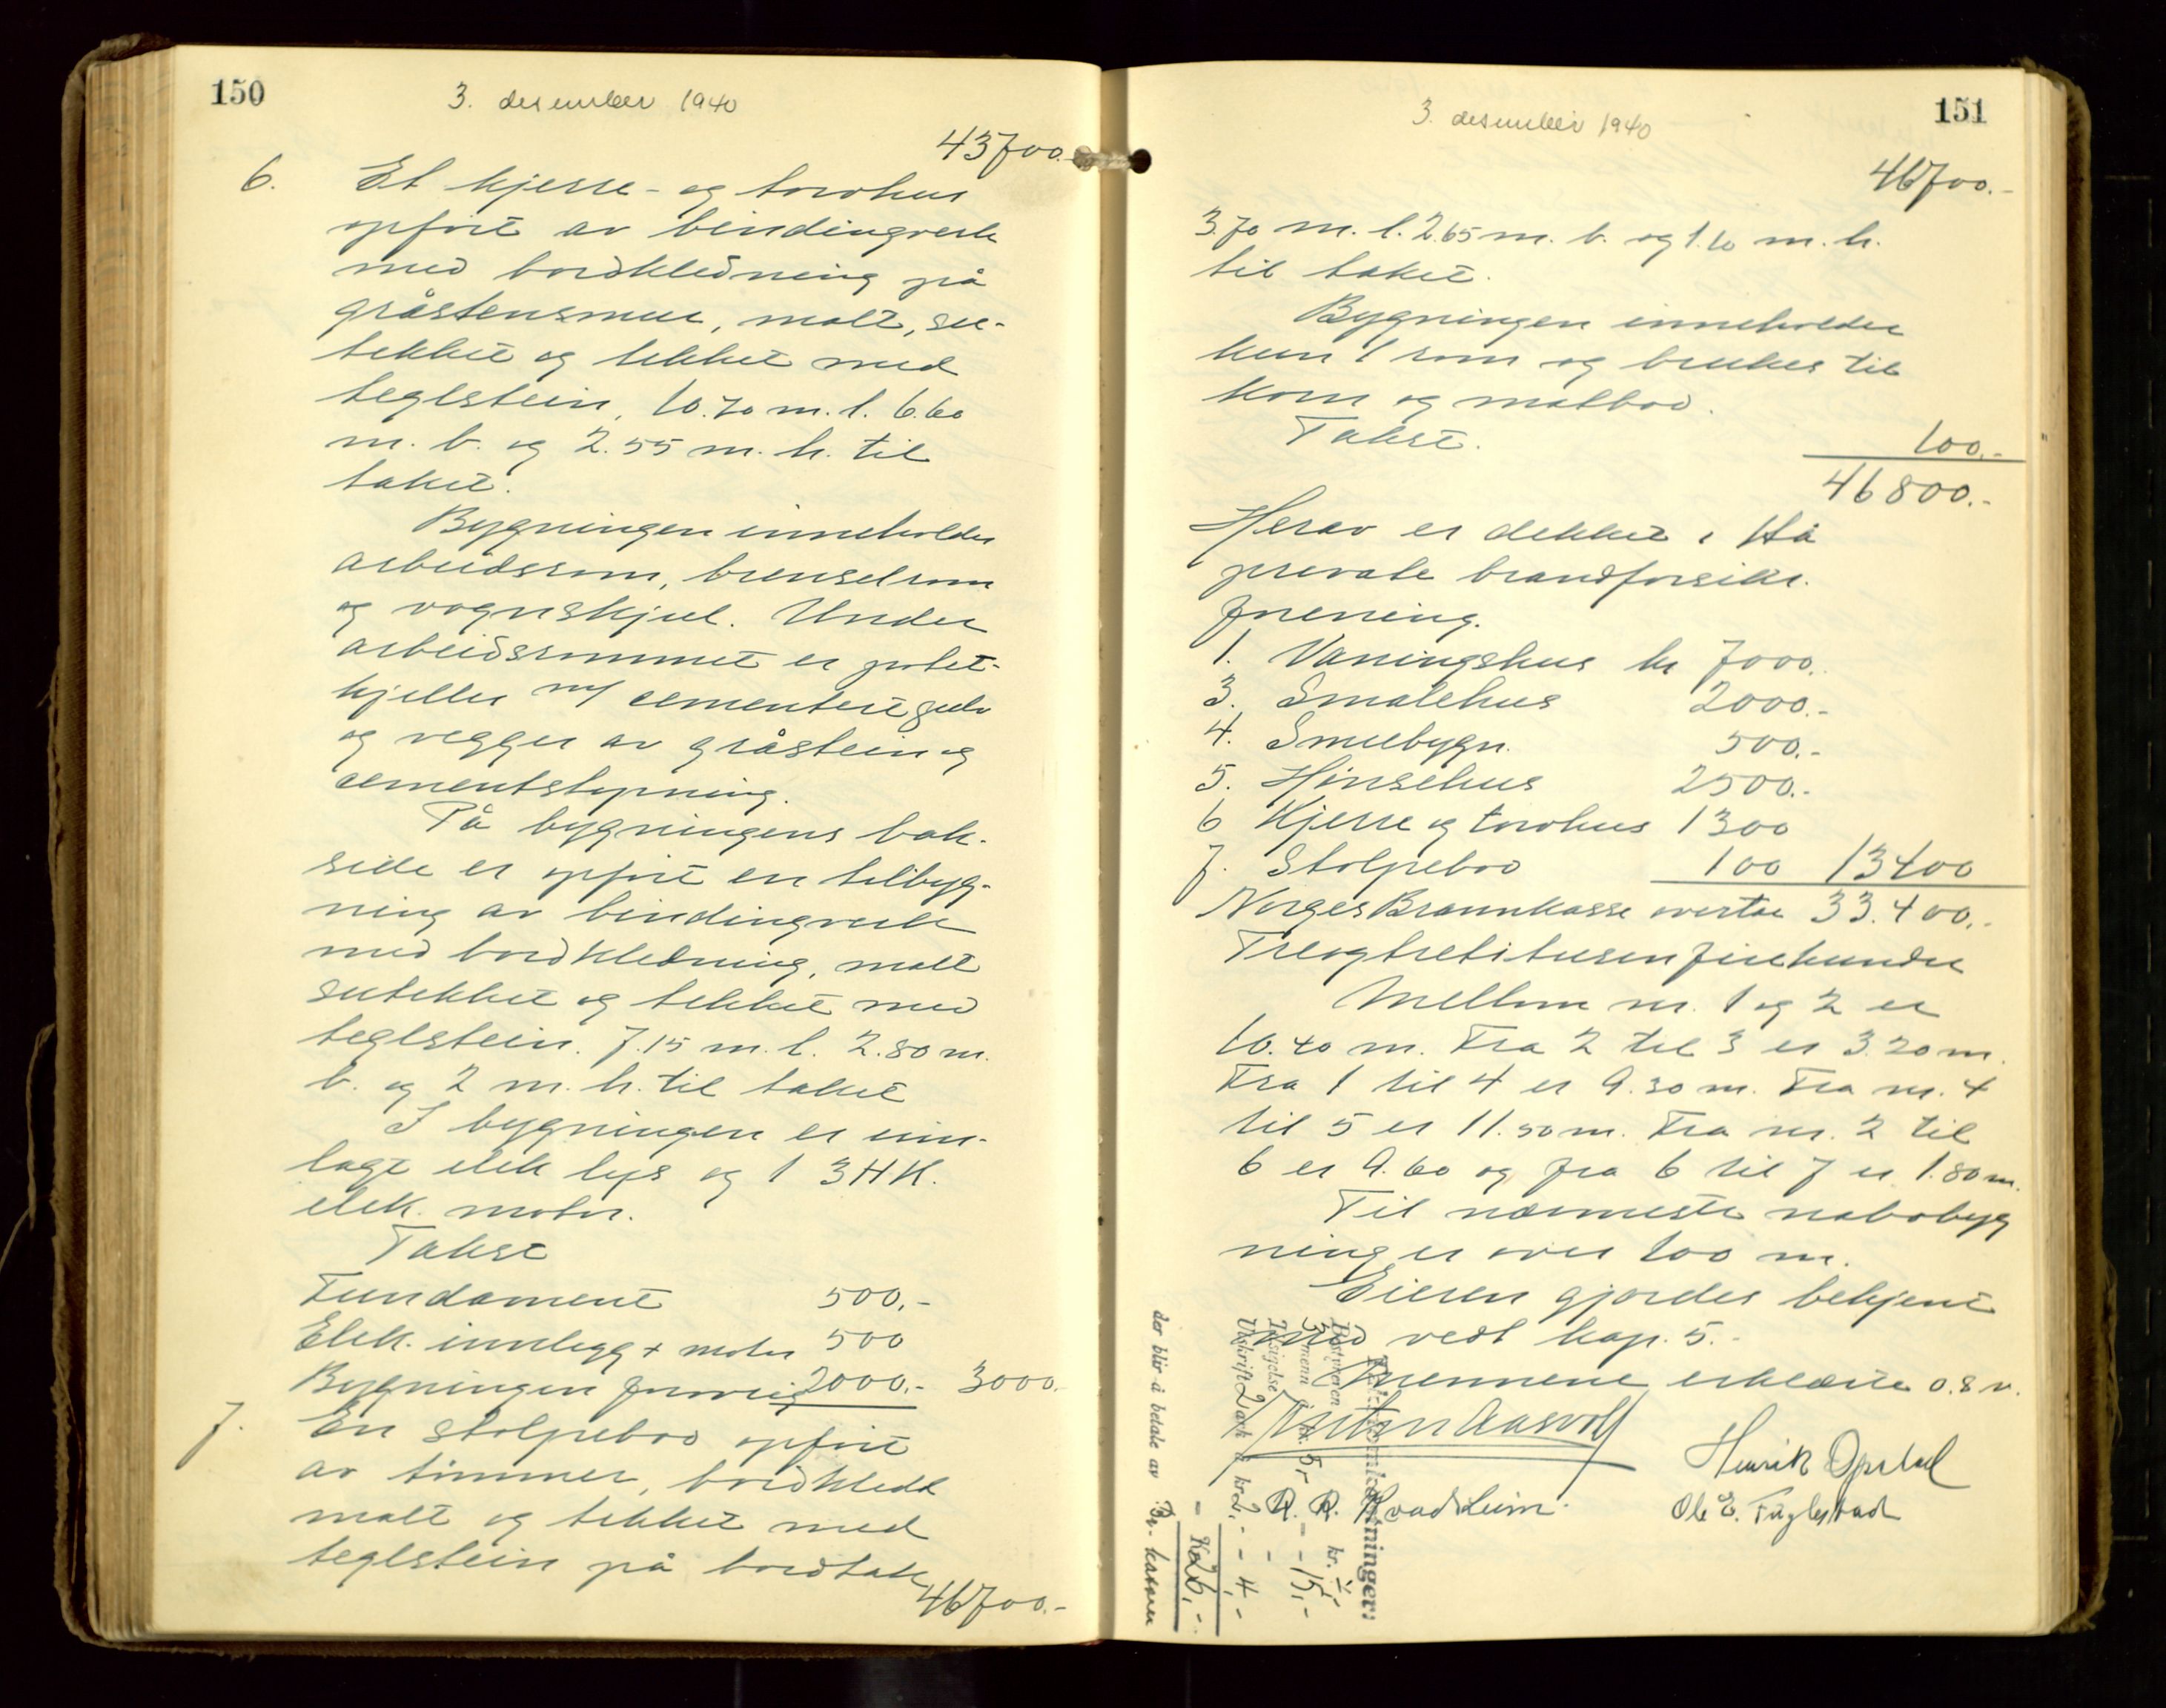 150
3. desember 1940
43700.-
6. Et kjerre- og torvhus
opført av bindingverk
med bordkledning på
gråstensmur, malt, su-
tekket og tekket med
teglstein, 10.70 m. l. 6.60
m. b. og 2.55 m. h. til
taket.
Bygningen inneholder
arbeidsrom, brenselrom
og vognskjul. Under
arbeidsrommet er potet-
kjeller m/ cementert gulv
og vegger av gråstein og
cementstøpning.
På bygningens bak-
side er opført en tilbyg-
ning av bindingverk
med bordkledning, malt
sutekket og tekket med
teglstein. 7.15 m. l. 2.80 m.
b. og 2 m. h. til taket
I bygningen er inn-
lagt elek lys og 1 3 HK.
elek. motor.
Takst
Fundament 500,-
Elek. innlegg + motor 500
Bygningen forøvrig 2000.- 3000.-
7. En stolpebod opført
av tømmer, bordkledt
malt og tekket med
teglstein på bordtak
46700.-
151
3. desember 1940
46700.-
3.70 m. l. 2.65 m. b. og 1.10 m. h.
til taket.
Bygningen inneholder
kun 1 rom og brukes til
korn og matbod.
Takst. 100.-
46800.-
Herav er dekket i Hå
private brandforsikr.
forening.
1. Våningshus kr 7000.
3. Smalehus 2000.-
4. Smiebygn. 500.-
5. Hønsehus 2500.-
6 Kjerre og torvhus 1300
7. Stolpebod 100 13400
Norges Brannkasse overtar 33.400.-
Treogtretitusenfirehundre
Mellom nr. 1 og 2 er
10.40 m. Fra 2 til 3 er 3.20 m.
Fra 1 til 4 er 9.30 m. Fra nr. 4
til 5 er 11.50 m. Fra nr. 2 til
6 er 9.60 og fra 6 til 7 er 1.80 m.
Til nærmeste nabobyg
ning er over 100 m.
Eieren gjordes bekjent
med vedt kap. 5.-
Mennene erklærte o.s.v.
Henrik Opstad
R. Kvadsheim.
Ole E. Fuglestad
Bestyreren kr.
3 menn à kr. 5,- - 15,-
Utskrift 2 ark à kr 2,- - 4,-
K 26,-
der blir å betale av Br. kassen